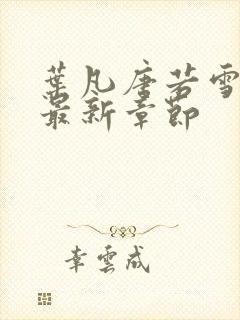 葉凡唐若雪
最新章節
幸雲成